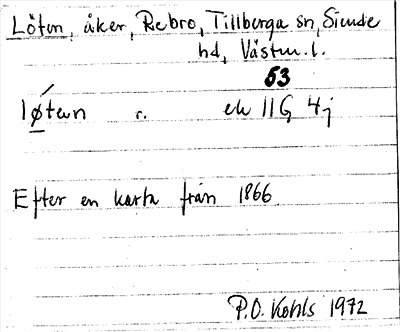 Löten, åker, Rebro, Tillberga sn, Siende
hd, Västm. l.
53
løtεn r. ek 11G 4j
Efter en karta från 1866
P.O. Kohls 1972